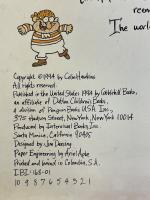 reem
The worl
Copyright © 1994 by Colin Hawkins
All rights reserved.
Published in the United States 1994 by Lodestar Books,
an affiliate of Dutton Children's Books,
a division of Penguin Books U.S.A. Inc.,
375 Hudson Street, New York, New York 10014
Produced by Intervisual Books Inc.
Santa Monica, California 90405
Designed by Jon Dansing
Paper Engineering by Ariel Apte
Printed and bound in Colombia, S.A.
I.B.I.-168-01
10 9 8 7 6 5 4 3 2 1